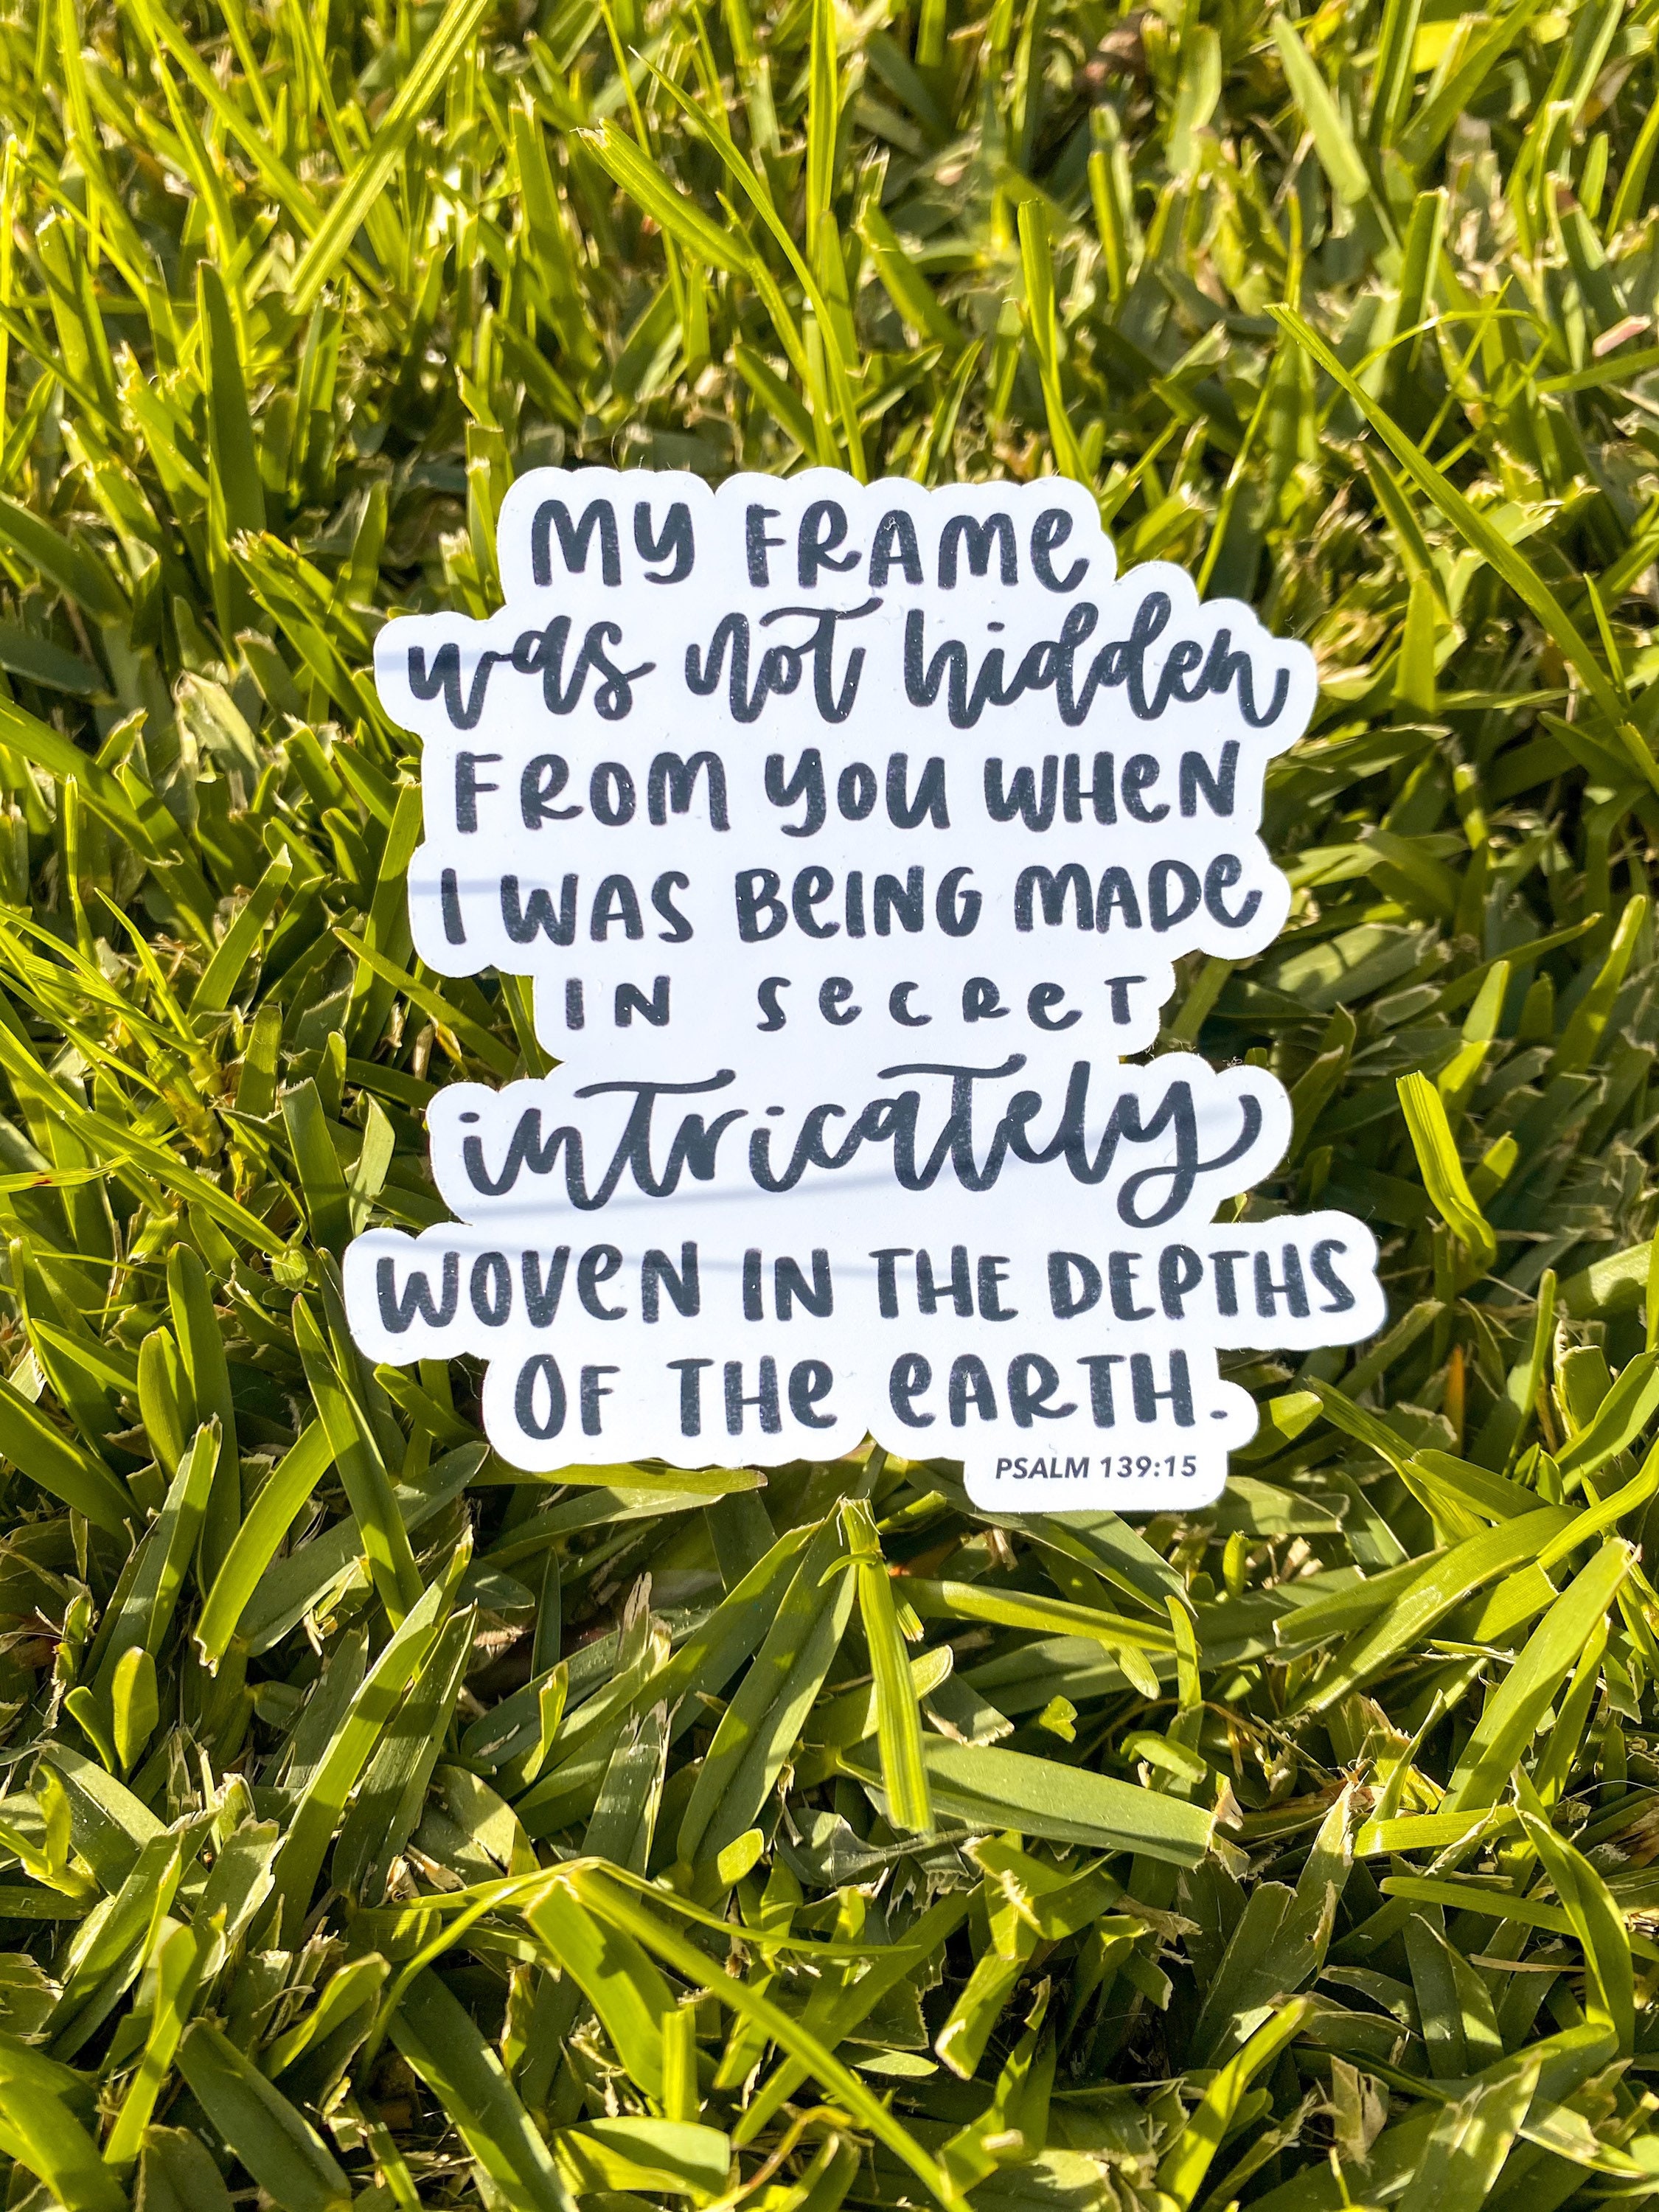 MY FRAME
was not hidden
FROM YOU WHEN
I WAS BEING MADE
IN SECRET
intricately
WOVEN IN THE DEPTHS
OF THE EARTH.
PSALM 139:15